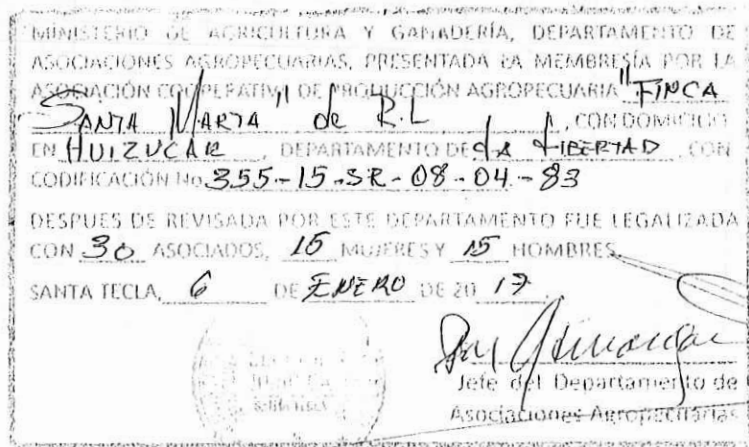 MINISTERIO DE AGRICULTURA Y GANADERÍA, DEPARTAMENTO DE
ASOCIACIONES AGROPECUARIAS, PRESENTADA LA MEMBRESÍA POR LA
ASOCIACIÓN COOPERATIVA DE PRODUCCIÓN AGROPECUARIA "FINCA
SANTA MARTA" de R.L , CON DOMICILIO
EN HUIZUCAR , DEPARTAMENTO DE LA LIBERTAD , CON
CODIFICACIÓN No. 355-15-SR-08-04-83
DESPUES DE REVISADA POR ESTE DEPARTAMENTO FUE LEGALIZADA
CON 30 ASOCIADOS, 15 MUJERES Y 15 HOMBRES.
SANTA TECLA, 6 DE ENERO DE 20 17
Jefe del Departamento de
Asociaciones Agropecuarias